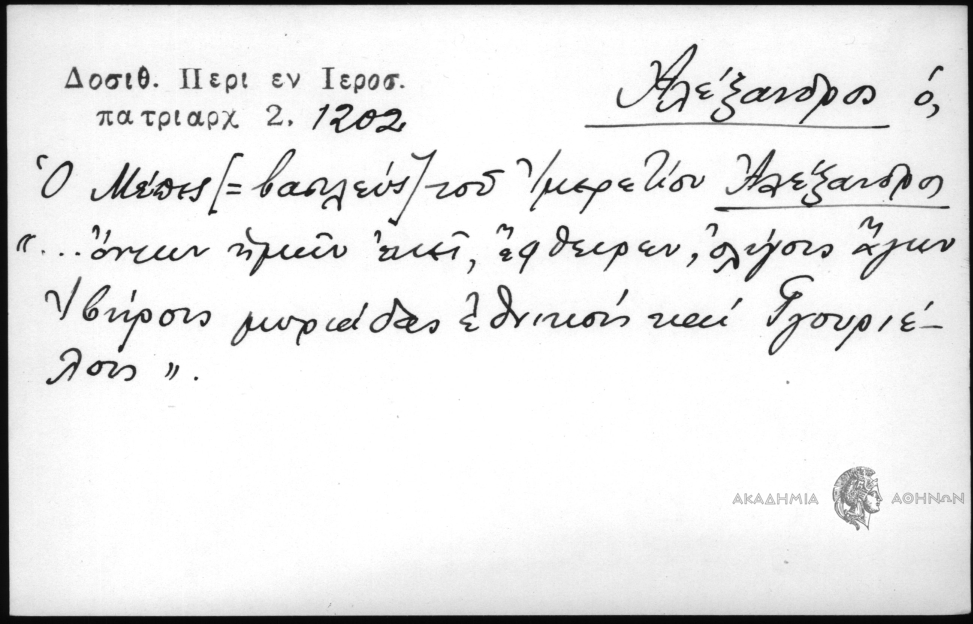 Δοσιθ. Περι εν Ιεροσ.
πατριαρχ 2. 1202
Ἀλέξανδρος ὁ,
Ὁ Μέπες [= βασιλεύς] τοῦ Ἰμερετίου Ἀλέξανδρος
"... ὄντων ἡμῶν ἐκεῖ, ἔφθειρεν, ὀλίγους ἄγων
Ἴβηρους μυριάδας ἐθνικούς καί Γγουριέ-
λους".
ΑΚΑΔΗΜΙΑ ΑΘΗΝΩΝ